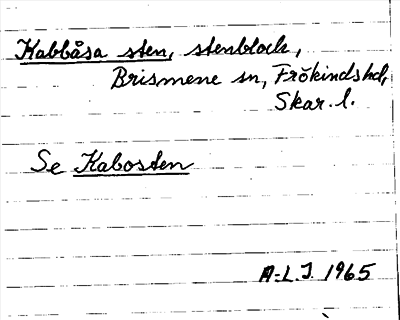 Kabbåsa sten, stenblock,
Brismene sn, Frökindshd,
Skar. l.
Se Kabosten
A-L.J. 1965